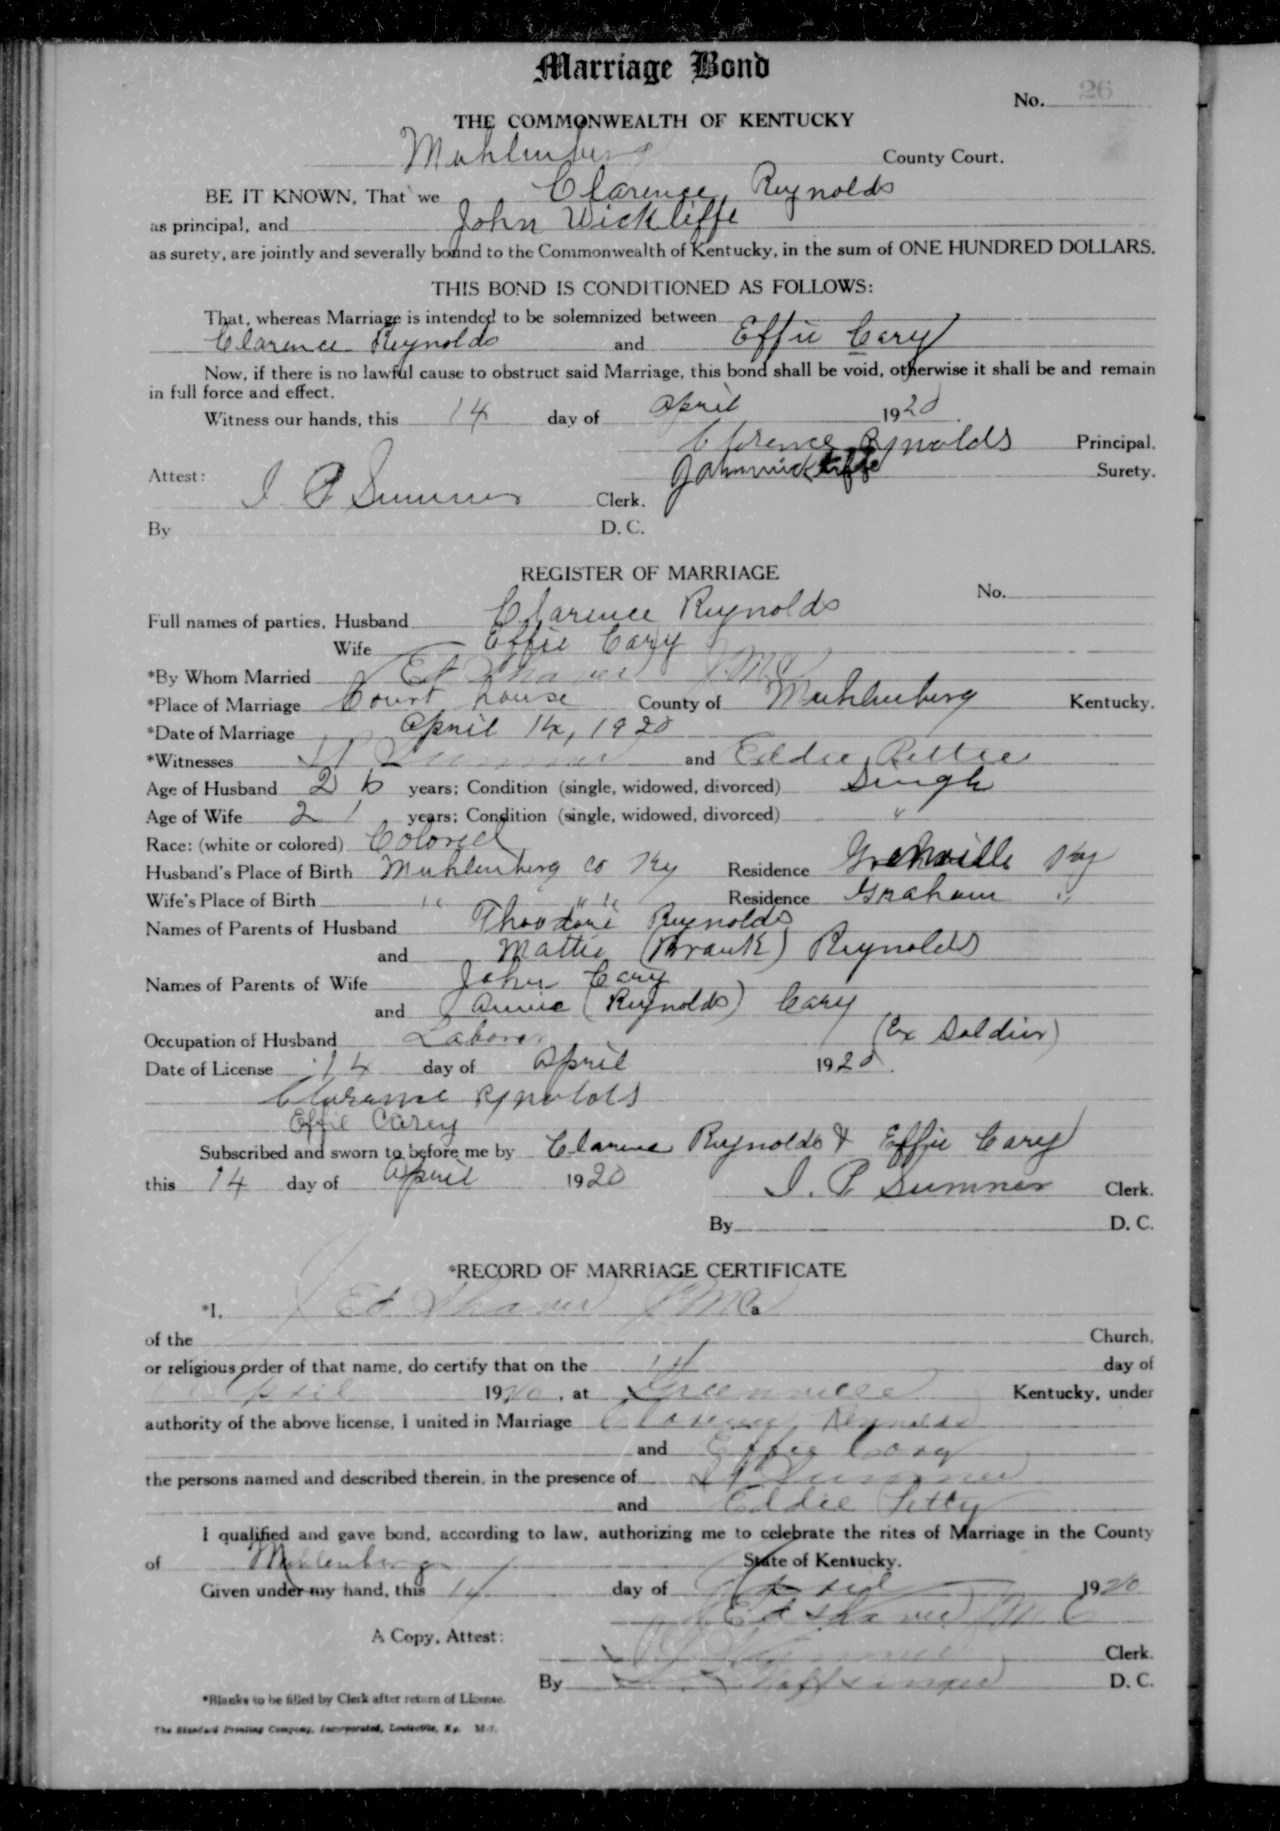 Marriage Bond
No. 26
THE COMMONWEALTH OF KENTUCKY
Muhlenberg County Court.
BE IT KNOWN, That we Clarence Reynolds
as principal, and John Wickliffe
as surety, are jointly and severally bound to the Commonwealth of Kentucky, in the sum of ONE HUNDRED DOLLARS.
THIS BOND IS CONDITIONED AS FOLLOWS:
That, whereas Marriage is intended to be solemnized between
Clarence Reynolds and Effie Cary
Now, if there is no lawful cause to obstruct said Marriage, this bond shall be void, otherwise it shall be and remain
in full force and effect.
Witness our hands, this 14 day of April 1920.
Clarence Rynolds Principal.
John Wickliffe Surety.
Attest: I P Sumner Clerk.
By D. C.
REGISTER OF MARRIAGE
No.
Full names of parties, Husband Clarence Reynolds
Wife Effie Cary
*By Whom Married Ed Shaver J.M.C
*Place of Marriage Court house County of Muhlenberg Kentucky.
*Date of Marriage April 14, 1920
*Witnesses Sumner and Eddie Pettie
Age of Husband 26 years; Condition (single, widowed, divorced) Single
Age of Wife 21 years; Condition (single, widowed, divorced) "
Race: (white or colored) Colored
Husband's Place of Birth Muhlenberg Co Ky Residence Grenville Ky
Wife's Place of Birth " " " Residence Graham "
Names of Parents of Husband Theodore Reynolds
and Mattie (Brank) Reynolds
Names of Parents of Wife John Cary
and Annie (Reynolds) Cary
Occupation of Husband Laborer (Ex Soldier)
Date of License 14 day of April 1920.
Clarence Rynolds
Effie Carey
Subscribed and sworn to before me by Clarence Reynolds & Effie Cary
this 14 day of April 1920
I. P. Sumner Clerk.
By D. C.
*RECORD OF MARRIAGE CERTIFICATE
*I, Ed Shaver J M C a
of the Church,
or religious order of that name, do certify that on the 14 day of
April 1920, at Greenville Kentucky, under
authority of the above license, I united in Marriage Clarence Reynolds
and Effie Cary
the persons named and described therein, in the presence of Sumner
and Eddie Petty
I qualified and gave bond, according to law, authorizing me to celebrate the rites of Marriage in the County
of Muhlenberg State of Kentucky.
Given under my hand, this 14 day of April 1920
Ed Shaver J M C
A Copy, Attest: Sumner Clerk.
By D. C.
*Blanks to be filled by Clerk after return of License.
The Standard Printing Company, Incorporated, Louisville, Ky. M-7.